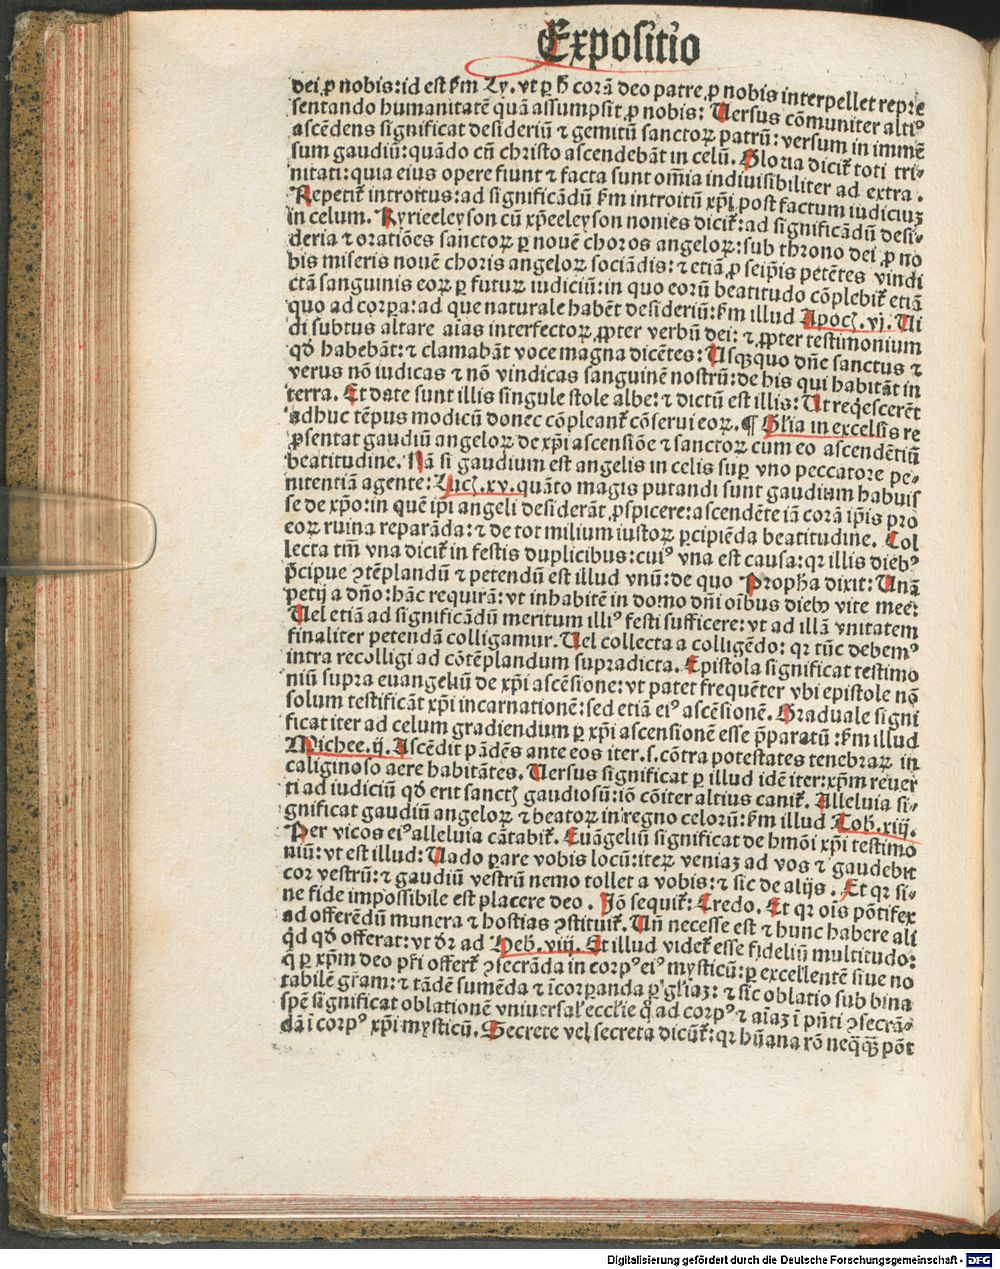 Expositio
dei ꝓ nobis: id est ẜm Ly. vt ꝑ ħ corã deo patre ꝓ nobis interpellet repre
sentando humanitatẽ quã assumpsit ꝓ nobis: Uersus cõmuniter altiꝰ
ascẽdens significat desideriũ ⁊ gemitũ sanctoꝝ patrũ: versum in immẽ
sum gaudiũ: quãdo cũ christo ascendebãt in celũ. Gloria dicit̃ toti tri⸗
nitati: quia eius opere fiunt ⁊ facta sunt om̃ia indiuisibiliter ad extra.
Repetit̃ introitus: ad significãdũ ẜm introitũ xp̃i post factum iudiciuꝫ
in celum. Kyrieeleyson cũ xp̃eeleyson nonies dicit̃: ad significãdũ desi⸗
deria ⁊ oratiões sanctoꝝ ꝑ nouẽ choros angeloꝝ: sub throno dei ꝓ no
bis miseris nouẽ choris angeloꝝ sociãdis: ⁊ etiã ꝓ seip̃is petẽtes vindi
ctã sanguinis eoꝝ ꝑ futuꝝ iudiciũ: in quo eorũ beatitudo cõplebit̃ etiã
quo ad corꝑa: ad que naturale habẽt desideriũ: ẜm illud Apocꝭ. vj. Ui
di subtus altare aĩas interfectoꝝ ꝓpter verbũ dei: ⁊ ꝓpter testimonium
qđ habebãt: ⁊ clamabãt voce magna dicẽtes: Usqꝫquo dñe sanctus ⁊
verus nõ iudicas ⁊ nõ vindicas sanguinẽ nostrũ: de his qui habitãt in
terra. Et date sunt illis singule stole albe: ⁊ dictũ est illis: Ut reqͥescerẽt
adhuc tẽpus modicũ donec cõpleant̃ cõserui eoꝝ. ¶ Gl̃ia in excelsis re
p̃sentat gaudiũ angeloꝝ de xp̃i ascensiõe ⁊ sanctoꝝ cum eo ascendẽtiũ
beatitudine. Nã si gaudium est angelis in celis suꝑ vno peccatore pe⸗
nitentiã agente: Lucꝭ. xv. quãto magis putandi sunt gaudium habuis
se de xp̃o: in quẽ ip̃i angeli desiderãt ꝓspicere: ascendẽte iã corã ip̃is pro
eoꝝ ruina reparãda: ⁊ de tot milium iustoꝝ ꝑcipiẽda beatitudine. Col
lecta tm̃ vna dicit̃ in festis duplicibus: cuiꝰ vna est causa: qꝛ illis diebꝰ
p̃cipue ꝯtẽplandũ ⁊ petendũ est illud vnũ: de quo Proph̃a dixit: Unã
petij a dño: hãc requirã: vt inhabitẽ in domo dñi oĩbus diebꝫ vite mee:
Uel etiã ad significãdũ meritum illiꝰ festi sufficere: vt ad illã vnitatem
finaliter petendã colligamur. Uel collecta a colligẽdo: qꝛ tũc debemꝰ
intra recolligi ad cõtẽplandum supradicta. Epistola significat testimo
niũ supra euangeliũ de xp̃i ascẽsione: vt patet frequẽter vbi epistole nõ
solum testificãt xp̃i incarnationẽ: sed etiã eiꝰ ascẽsionẽ. Graduale signi
ficat iter ad celum gradiendum ꝑ xp̃i ascensionẽ esse p̃paratũ: ẜm illud
Michee. ij. Ascẽdit pãdẽs ante eos iter. s. cõtra potestates tenebraꝝ in
caliginoso aere habitãtes. Uersus significat ꝑ illud idẽ iter: xp̃m reuer
ti ad iudiciũ qđ erit sanctꝭ gaudiosũ: iõ cõiter altius canit̃. Alleluia si⸗
gnificat gaudiũ angeloꝝ ⁊ beatoꝝ in regno celorũ: ẜm illud Tob. xiij.
Per vicos eiꝰ alleluia cãtabit̃. Euãgeliũ significat de hm̃õi xp̃i testimo
niũ: vt est illud: Uado parare vobis locũ: iteꝝ veniaꝫ ad vos ⁊ gaudebit
cor vestrũ: ⁊ gaudiũ vestrũ nemo tollet a vobis: ⁊ sic de alijs. Et qꝛ si⸗
ne fide impossibile est placere deo. Jõ sequit̃: Credo. Et qꝛ oĩs põtifex
ad offerẽdũ munera ⁊ hostias ꝯstituit̃. Uñ necesse est ⁊ hunc habere ali
qͥd qđ offerat: vt dr̃ ad Heb. viij. Et illud videt̃ esse fideliũ multitudo:
q̃ ꝑ xp̃m deo pr̃i offert̃ ꝯsecrãda in corpꝰ eiꝰ mysticũ: ꝑ excellentẽ siue no
tabilẽ gr̃am: ⁊ tãdẽ sumẽda ⁊ ĩcorꝑanda ꝑ gl̃iaꝫ: ⁊ sic oblatio sub bina
spẽ significat oblationẽ vniuersal̃ eccl̃ie qͦ ad corpꝰ ⁊ aĩaꝫ ĩ pñti ꝯsecrã⸗
dã ĩ corpꝰ xp̃i mysticũ. Secrete vel secreta dicũt̃: qꝛ hũana rõ neq̃q̃ꝫ põt